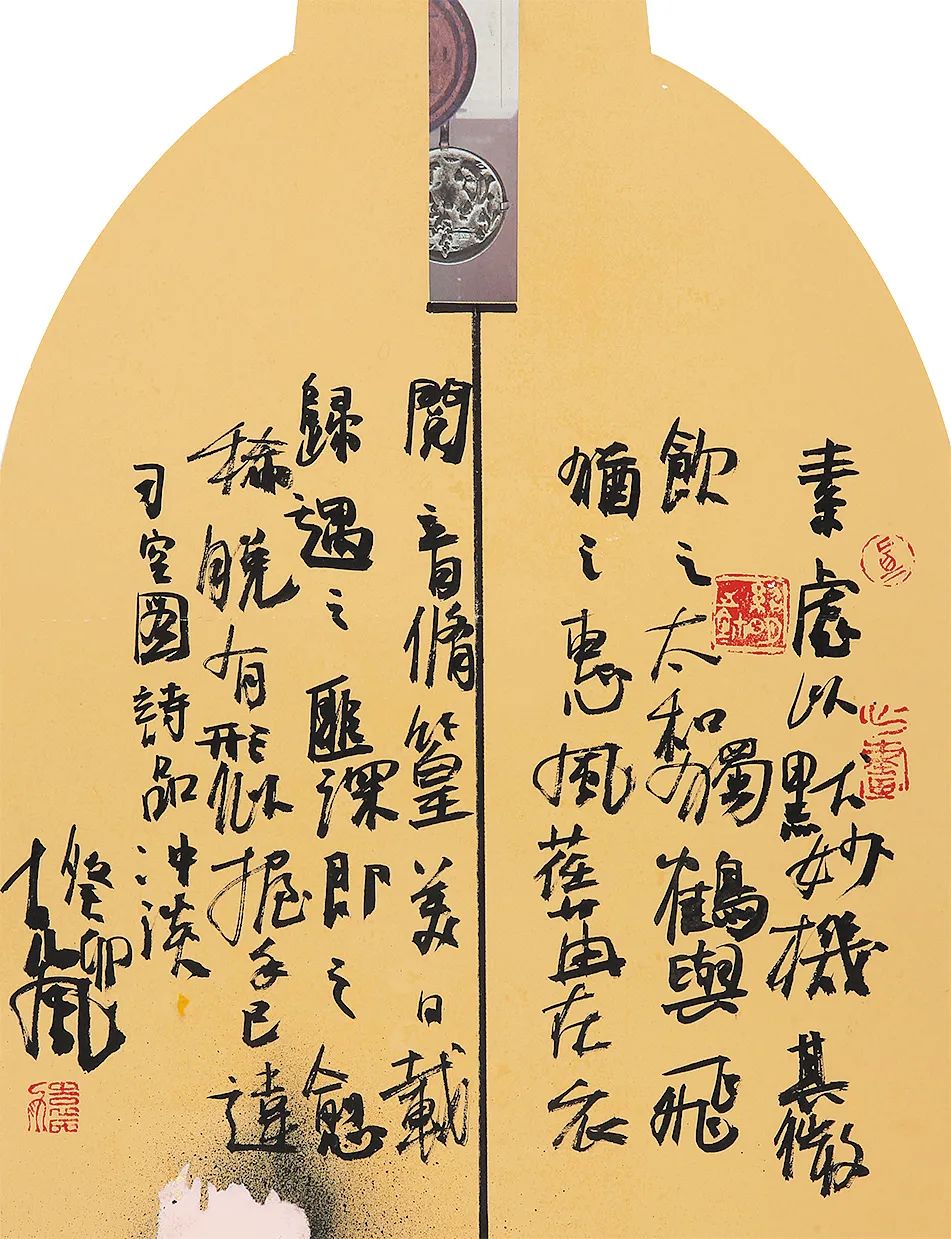 素處以默妙機其微
飲之太和獨鶴與飛
猶之惠風荏苒在衣
閱音脩篁美曰載
歸遇之匪深即之愈
稀脱有形似握手已違
司空圖詩品冲淡
癸卯